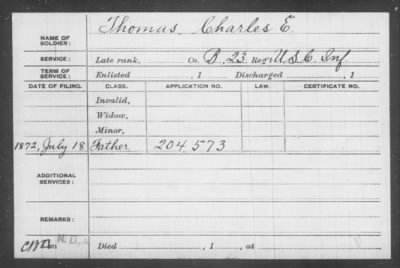 NAME OF SOLDIER: Thomas, Charles E.
SERVICE: Late rank, Co. B, 23 Reg't U.S.C. Inf
TERM OF SERVICE: Enlisted , 1 Discharged , 1
DATE OF FILING. CLASS. APPLICATION NO. LAW. CERTIFICATE NO.
Invalid,
Widow,
Minor,
1872, July 18 Father 204 573
ADDITIONAL SERVICES:
REMARKS:
Died , 1 , at